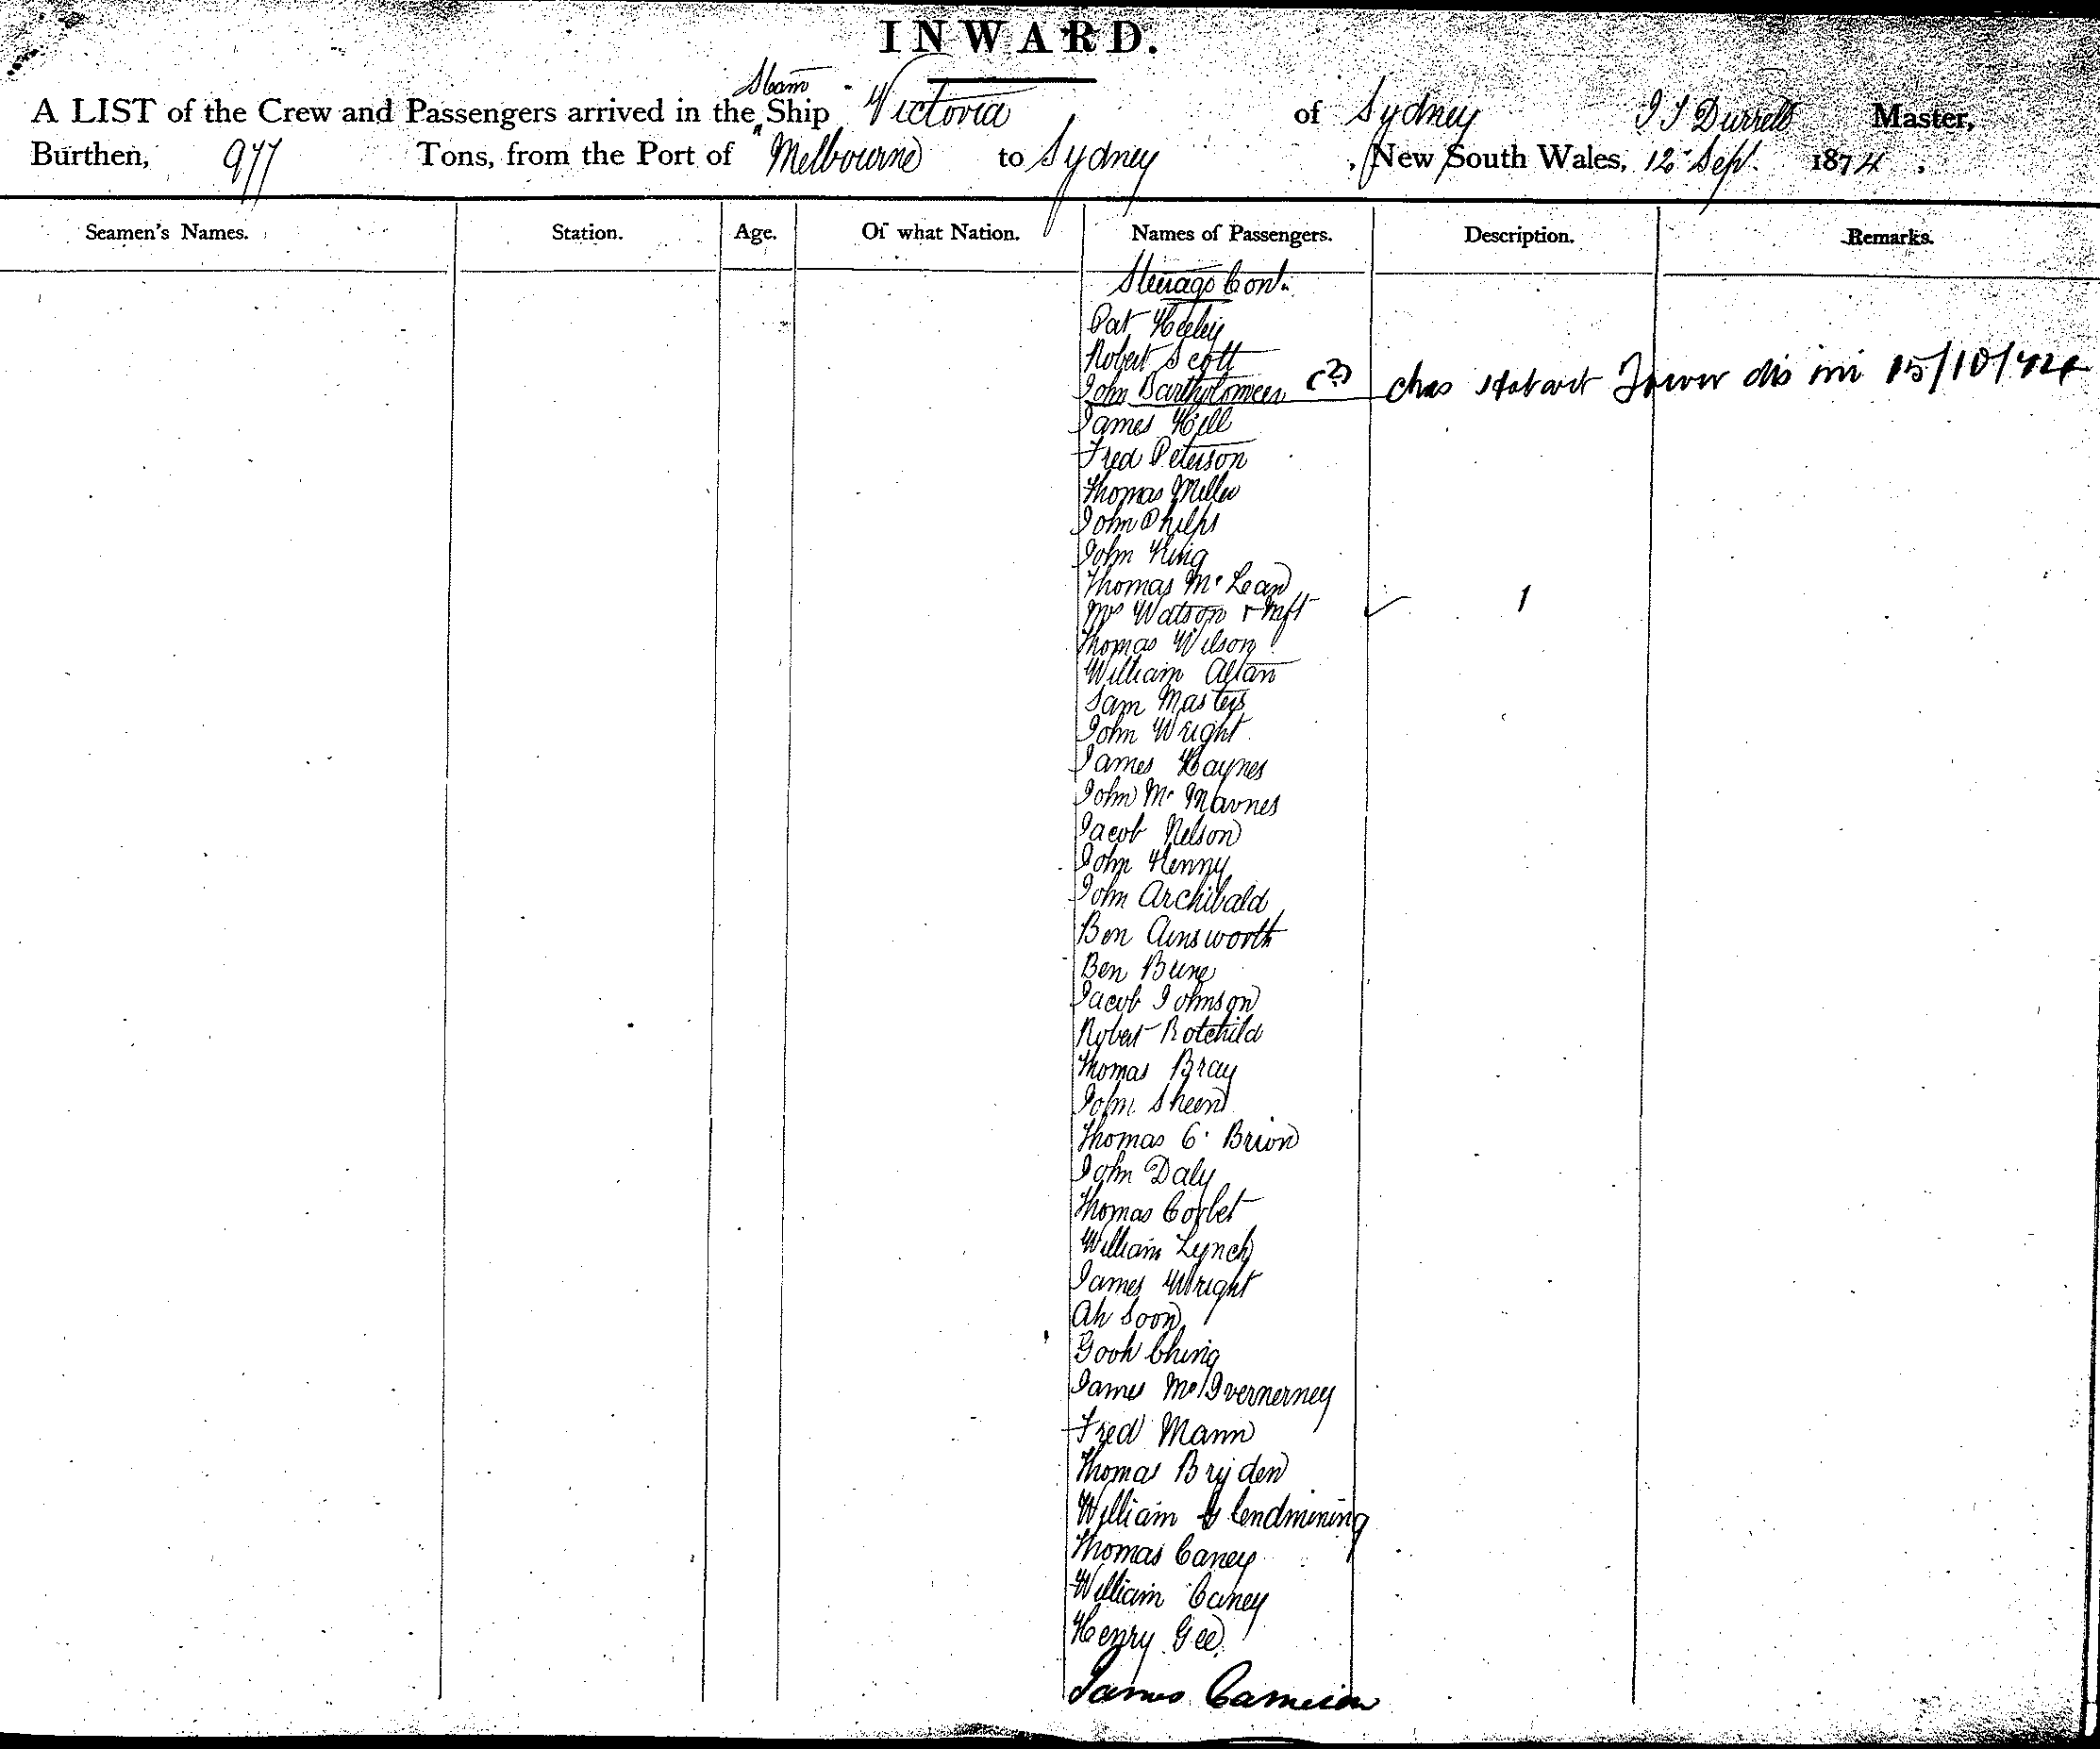 INWARD.
A LIST of the Crew and Passengers arrived in the Steam Ship Victoria of Sydney Master,
Burthen, 977 Tons, from the Port of Melbourne to Sydney, New South Wales, 12 Sept. 1874.
Seamen's Names. Station. Age. Of what Nation. Names of Passengers. Description. Remarks.
Steerage Cont.
Pat Heeley
Robert Scott
John Bartholomew (2) chas 15/10/74
James Hill
Fred Peterson
Thomas Miller
John Philps
John King
Thomas McLean
Mrs Watson & Inft 1
Thomas Wilson
William Allan
Sam Masters
John Wright
James Haynes
John Mc
Jacob Nelson
John Kenny
John Archibald
Ben Ainsworth
Ben Bune
Jacob Johnson
Robert Rotchild
Thomas Bray
John Sheen
Thomas O'Brion
John Daly
Thomas Corbet
William Lynch
James Wright
Ah Soon
Gook Ching
James McIvernerney
Fred Mann
Thomas Bryden
William
Thomas Caney
William Caney
Henry Gee
James Cameron